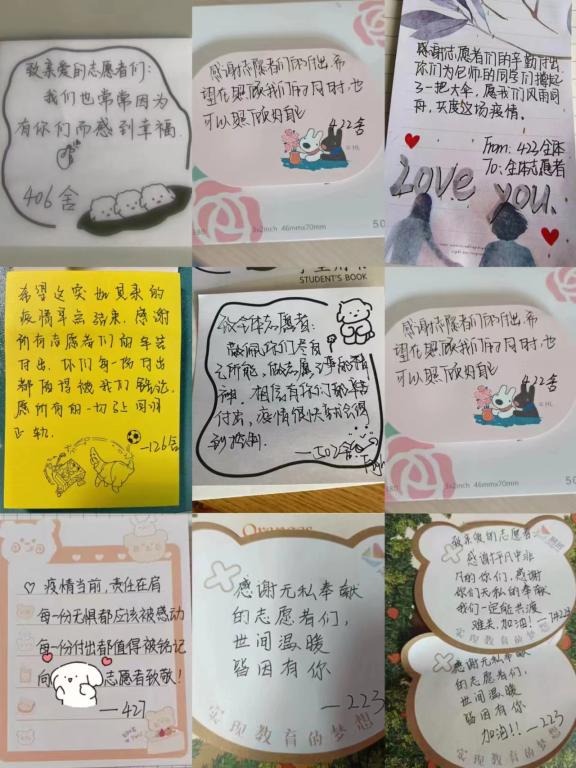 致亲爱的志愿者们:
我们也常常因为
有你们而感到幸福.
406舍
感谢志愿者们的付出,希
望在照顾我们的同时,也
可以照顾好自己
422舍
3x2inch 46mmx70mm
50
感谢志愿者们的辛勤付出
你们为尼师的同学们撑起
了一把大伞,愿我们风雨同
舟,共度这场疫情.
From: 423全体
To: 全体志愿者
Love you.
希望这突如其来的
疫情早点结束.感谢
所有志愿者们的辛苦
付出.你们每一份付出
都值得被我们铭记.
愿所有的一切早日回归
正轨.
—126舍
STUDENT'S BOOK
致全体志愿者:
敬佩你们尽自
己所能,做志愿之事的精
神.相信有你们的辛苦
付出,疫情很快就会得
到控制.
—502舍
感谢志愿者们的付出,希
望在照顾我们的同时,也
可以照顾好自己
422舍
3x2inch 46mmx70mm
50
♡ 疫情当前,责任在肩
每一份无惧都应该被感动
每一份付出都值得被铭记
向 志愿者致敬!
—427
Oranges
感谢无私奉献
的志愿者们,
世间温暖
皆因有你
—223
实现教育的梦想
致亲爱的志愿者:
感谢平凡中非
凡的你们,感谢
你们无私的奉献
我们一定能共渡
难关,加油!
实现教育的梦想
感谢无私奉献
的志愿者们,
世间温暖
皆因有你
加油!! —223
实现教育的梦想